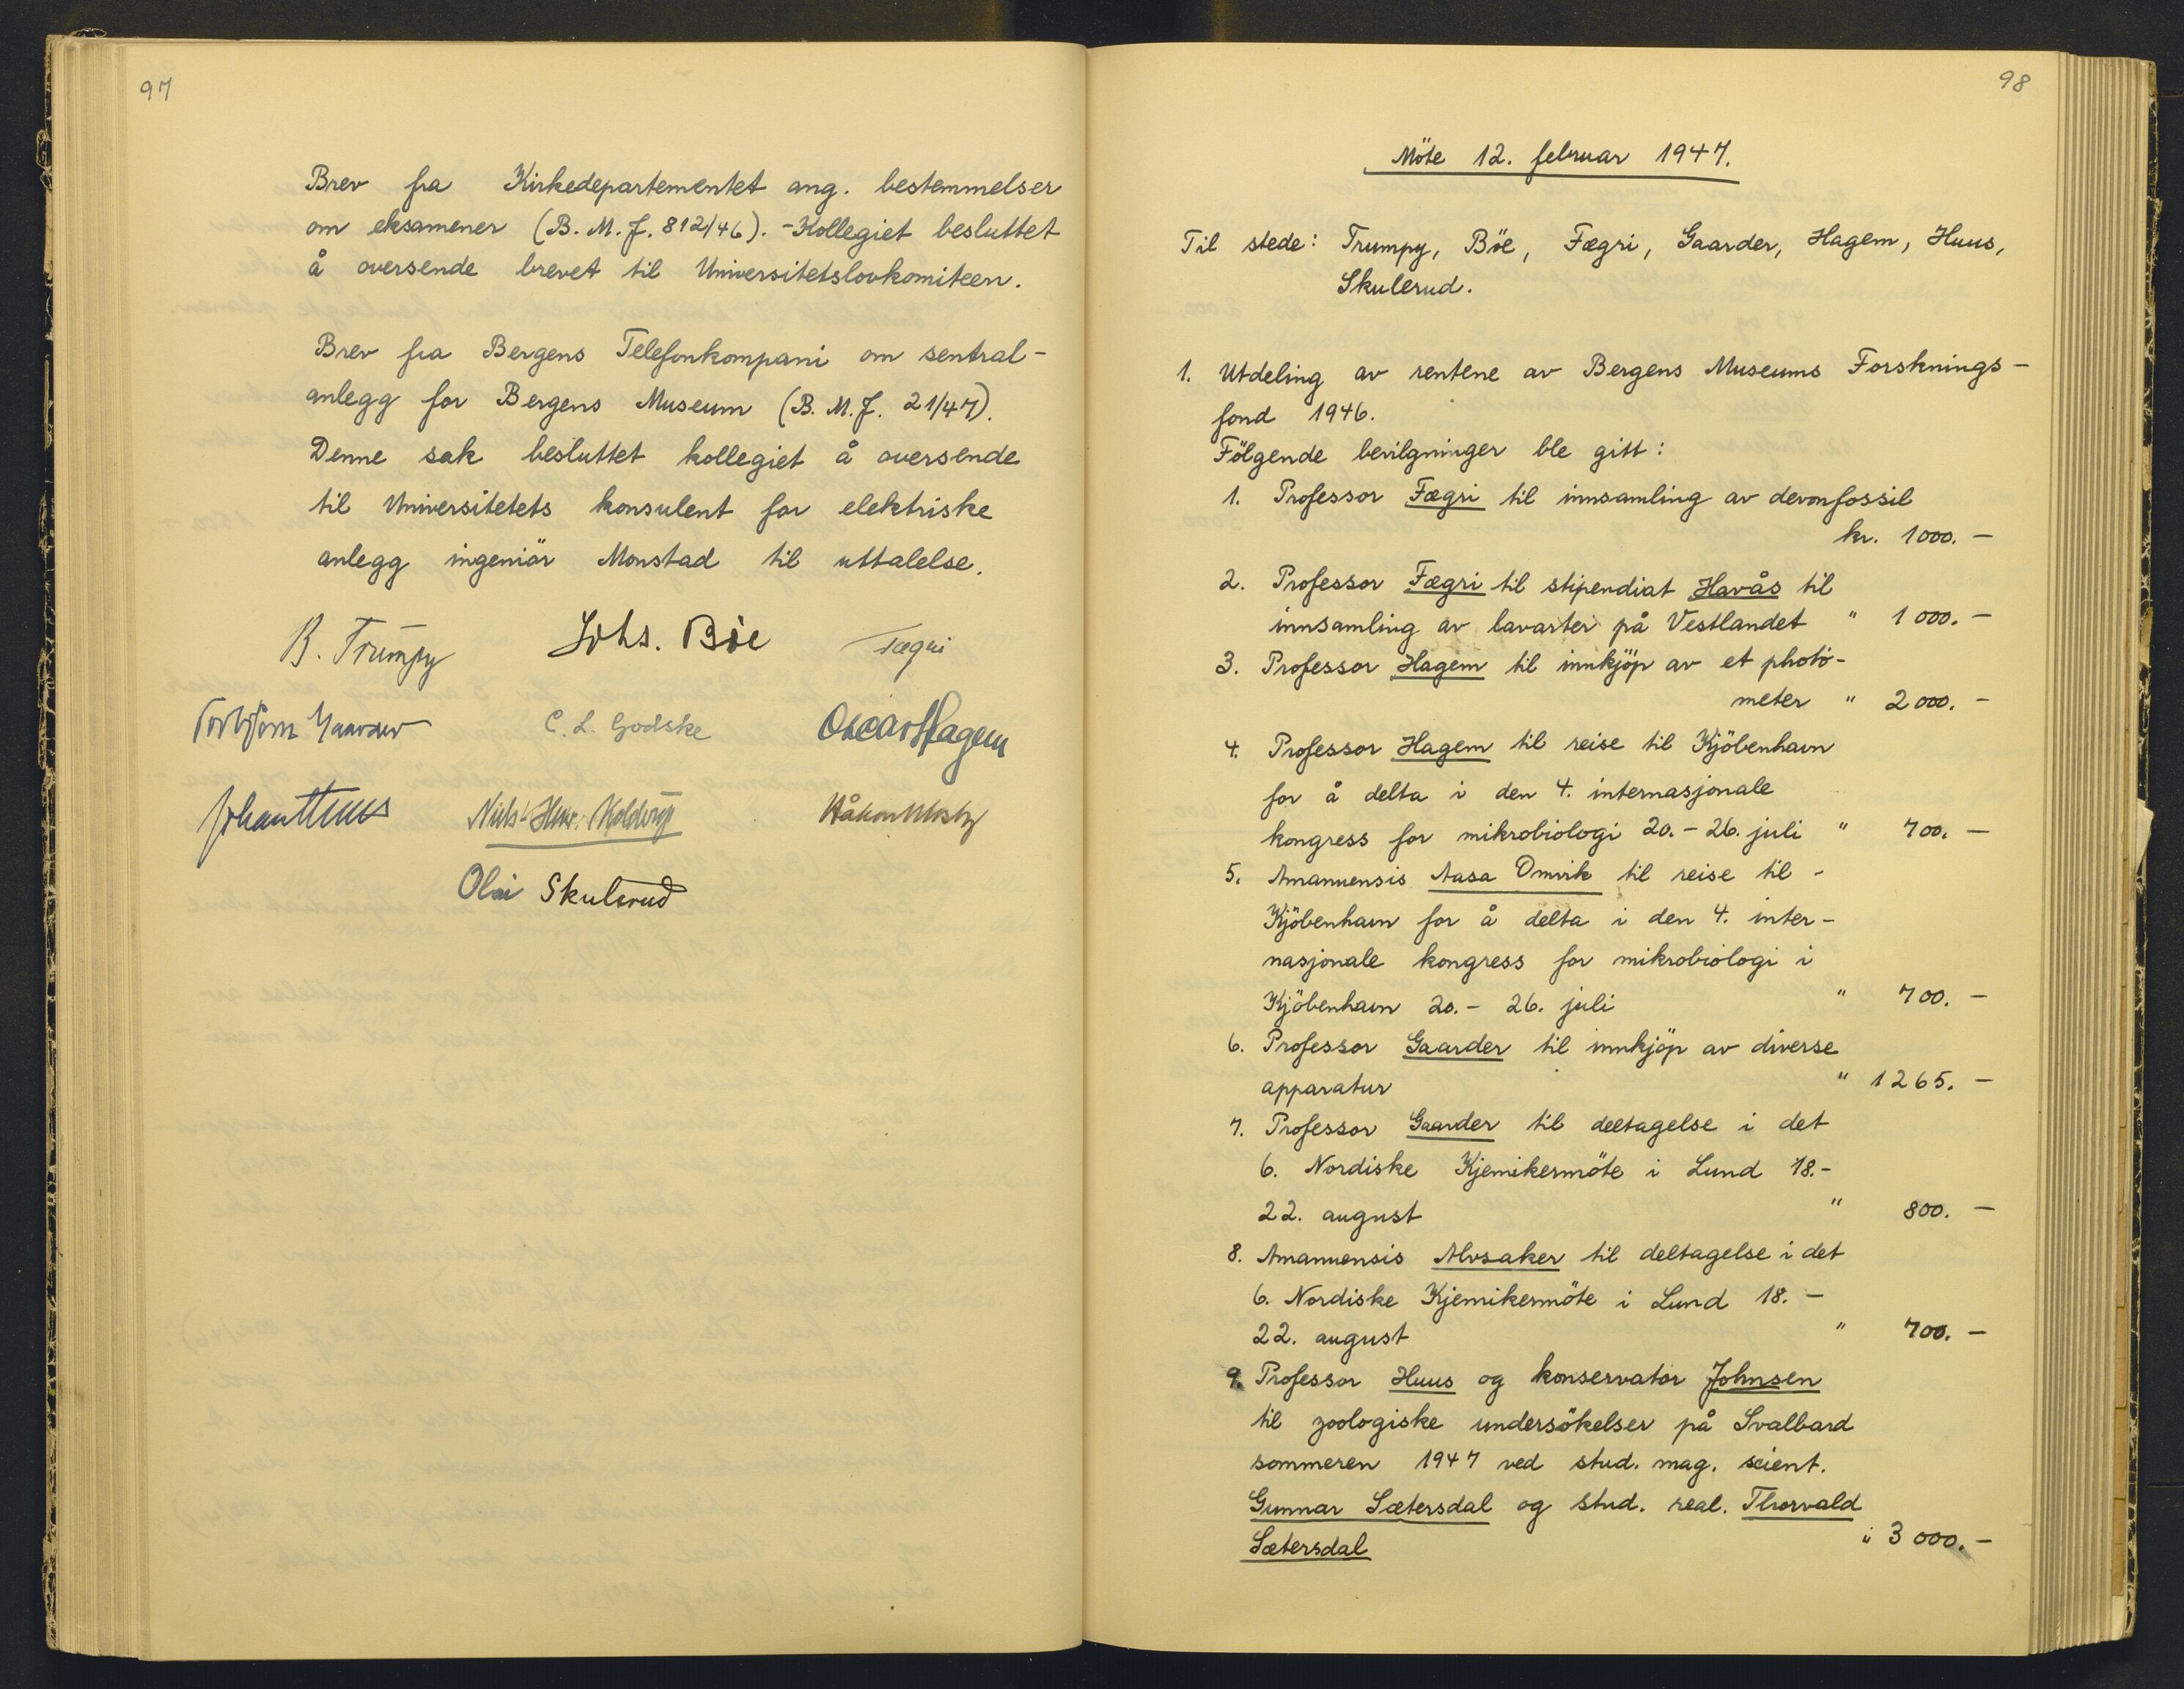 97
Brev fra Kirkedepartementet ang. bestemmelser
om eksamener (B. M. J. 812/46). - Kollegiet besluttet
å oversende brevet til Universitetslovkomiteen.
Brev fra Bergens Telefonkompani om sentral-
anlegg for Bergens Museum (B. M. J. 21/47).
Denne sak besluttet kollegiet å oversende
til Universitetets konsulent for elektriske
anlegg ingeniör Monstad til uttalelse.
B. Trumpy Johs. Böe Fægri
Torbjörn Gaarder C. L. Godske Oscar Hagem
Johan Huus Niels-Henr. Kolderup Håkon Mosby
Olai Skulerud
98
Möte 12. februar 1947.
Til stede: Trumpy, Böe, Fægri, Gaarder, Hagem, Huus,
Skulerud.
1. Utdeling av rentene av Bergens Museums Forsknings-
fond 1946.
Fölgende bevilgninger ble gitt:
1. Professor Fægri til innsamling av devonfossil
kr. 1000. —
2. Professor Fægri til stipendiat Havås til
innsamling av lavarter på Vestlandet " 1000. —
3. Professor Hagem til innkjöp av et photo-
meter " 2000. —
4. Professor Hagem til reise til Kjöbenhavn
for å delta i den 4. internasjonale
kongress for mikrobiologi 20. - 26. juli " 700. —
5. Amanuensis Aasa Omvik til reise til -
Kjöbenhavn for å delta i den 4. inter-
nasjonale kongress for mikrobiologi i
Kjöbenhavn 20. - 26. juli " 700. —
6. Professor Gaarder til innkjöp av diverse
apparatur " 1265. —
7. Professor Gaarder til deltagelse i det
6. Nordiske Kjemikermöte i Lund 18. -
22. august " 800. —
8. Amanuensis Alvsaker til deltagelse i det
6. Nordiske Kjemikermöte i Lund 18. -
22. august " 700. —
9. Professor Huus og konservator Johnsen
til zoologiske undersökelser på Svalbard
sommeren 1947 ved stud. mag. scient.
Gunnar Sætersdal og stud. real. Thorvald
Sætersdal " 3000. —